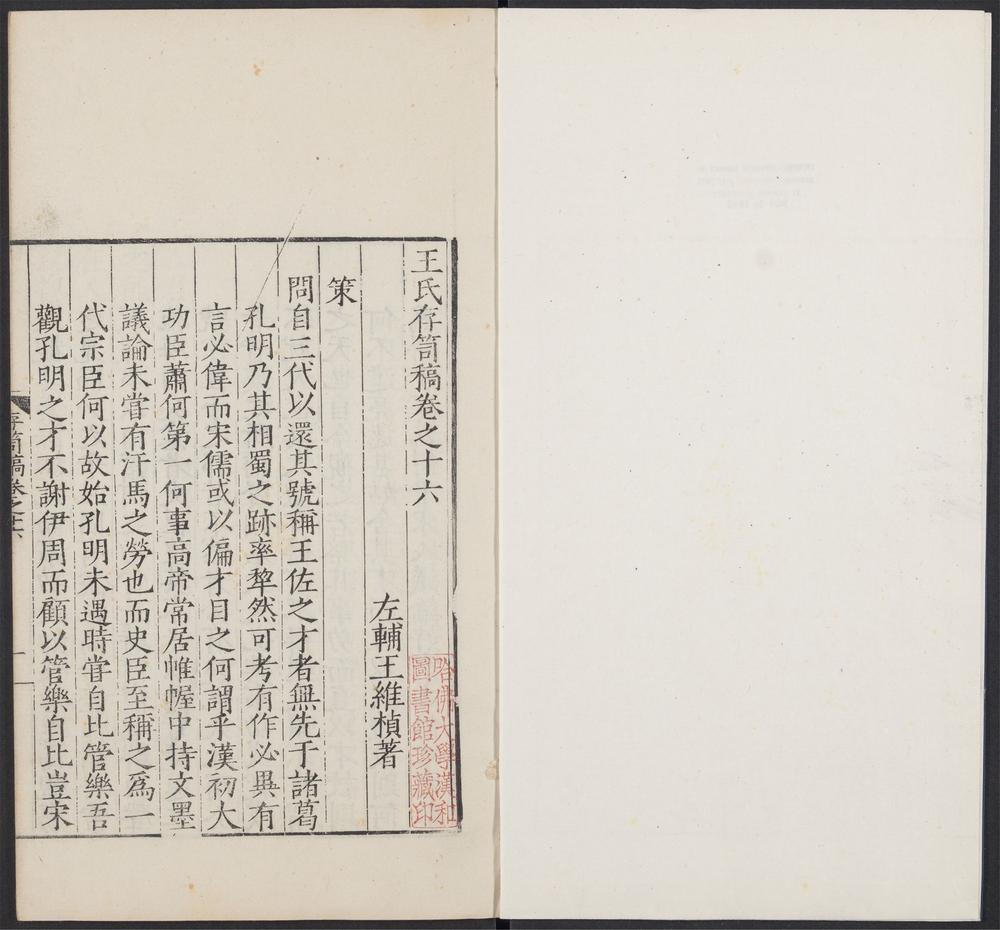 王氏存笥稿卷之十六
左輔王維楨著
策
問自三代以還其號稱王佐之才者無先于諸葛
孔明乃其相蜀之跡率犖然可考有作必異有
言必偉而宋儒或以偏才目之何謂乎漢初大
功臣蕭何第一何事高帝常居帷幄中持文墨
議論未嘗有汗馬之勞也而史臣至稱之爲一
代宗臣何以故始孔明未遇時嘗自比管樂吾
觀孔明之才不謝伊周而顧以管樂自比豈宋
存笥稿卷之十六
一
哈佛大學漢和
圖書館珍藏印